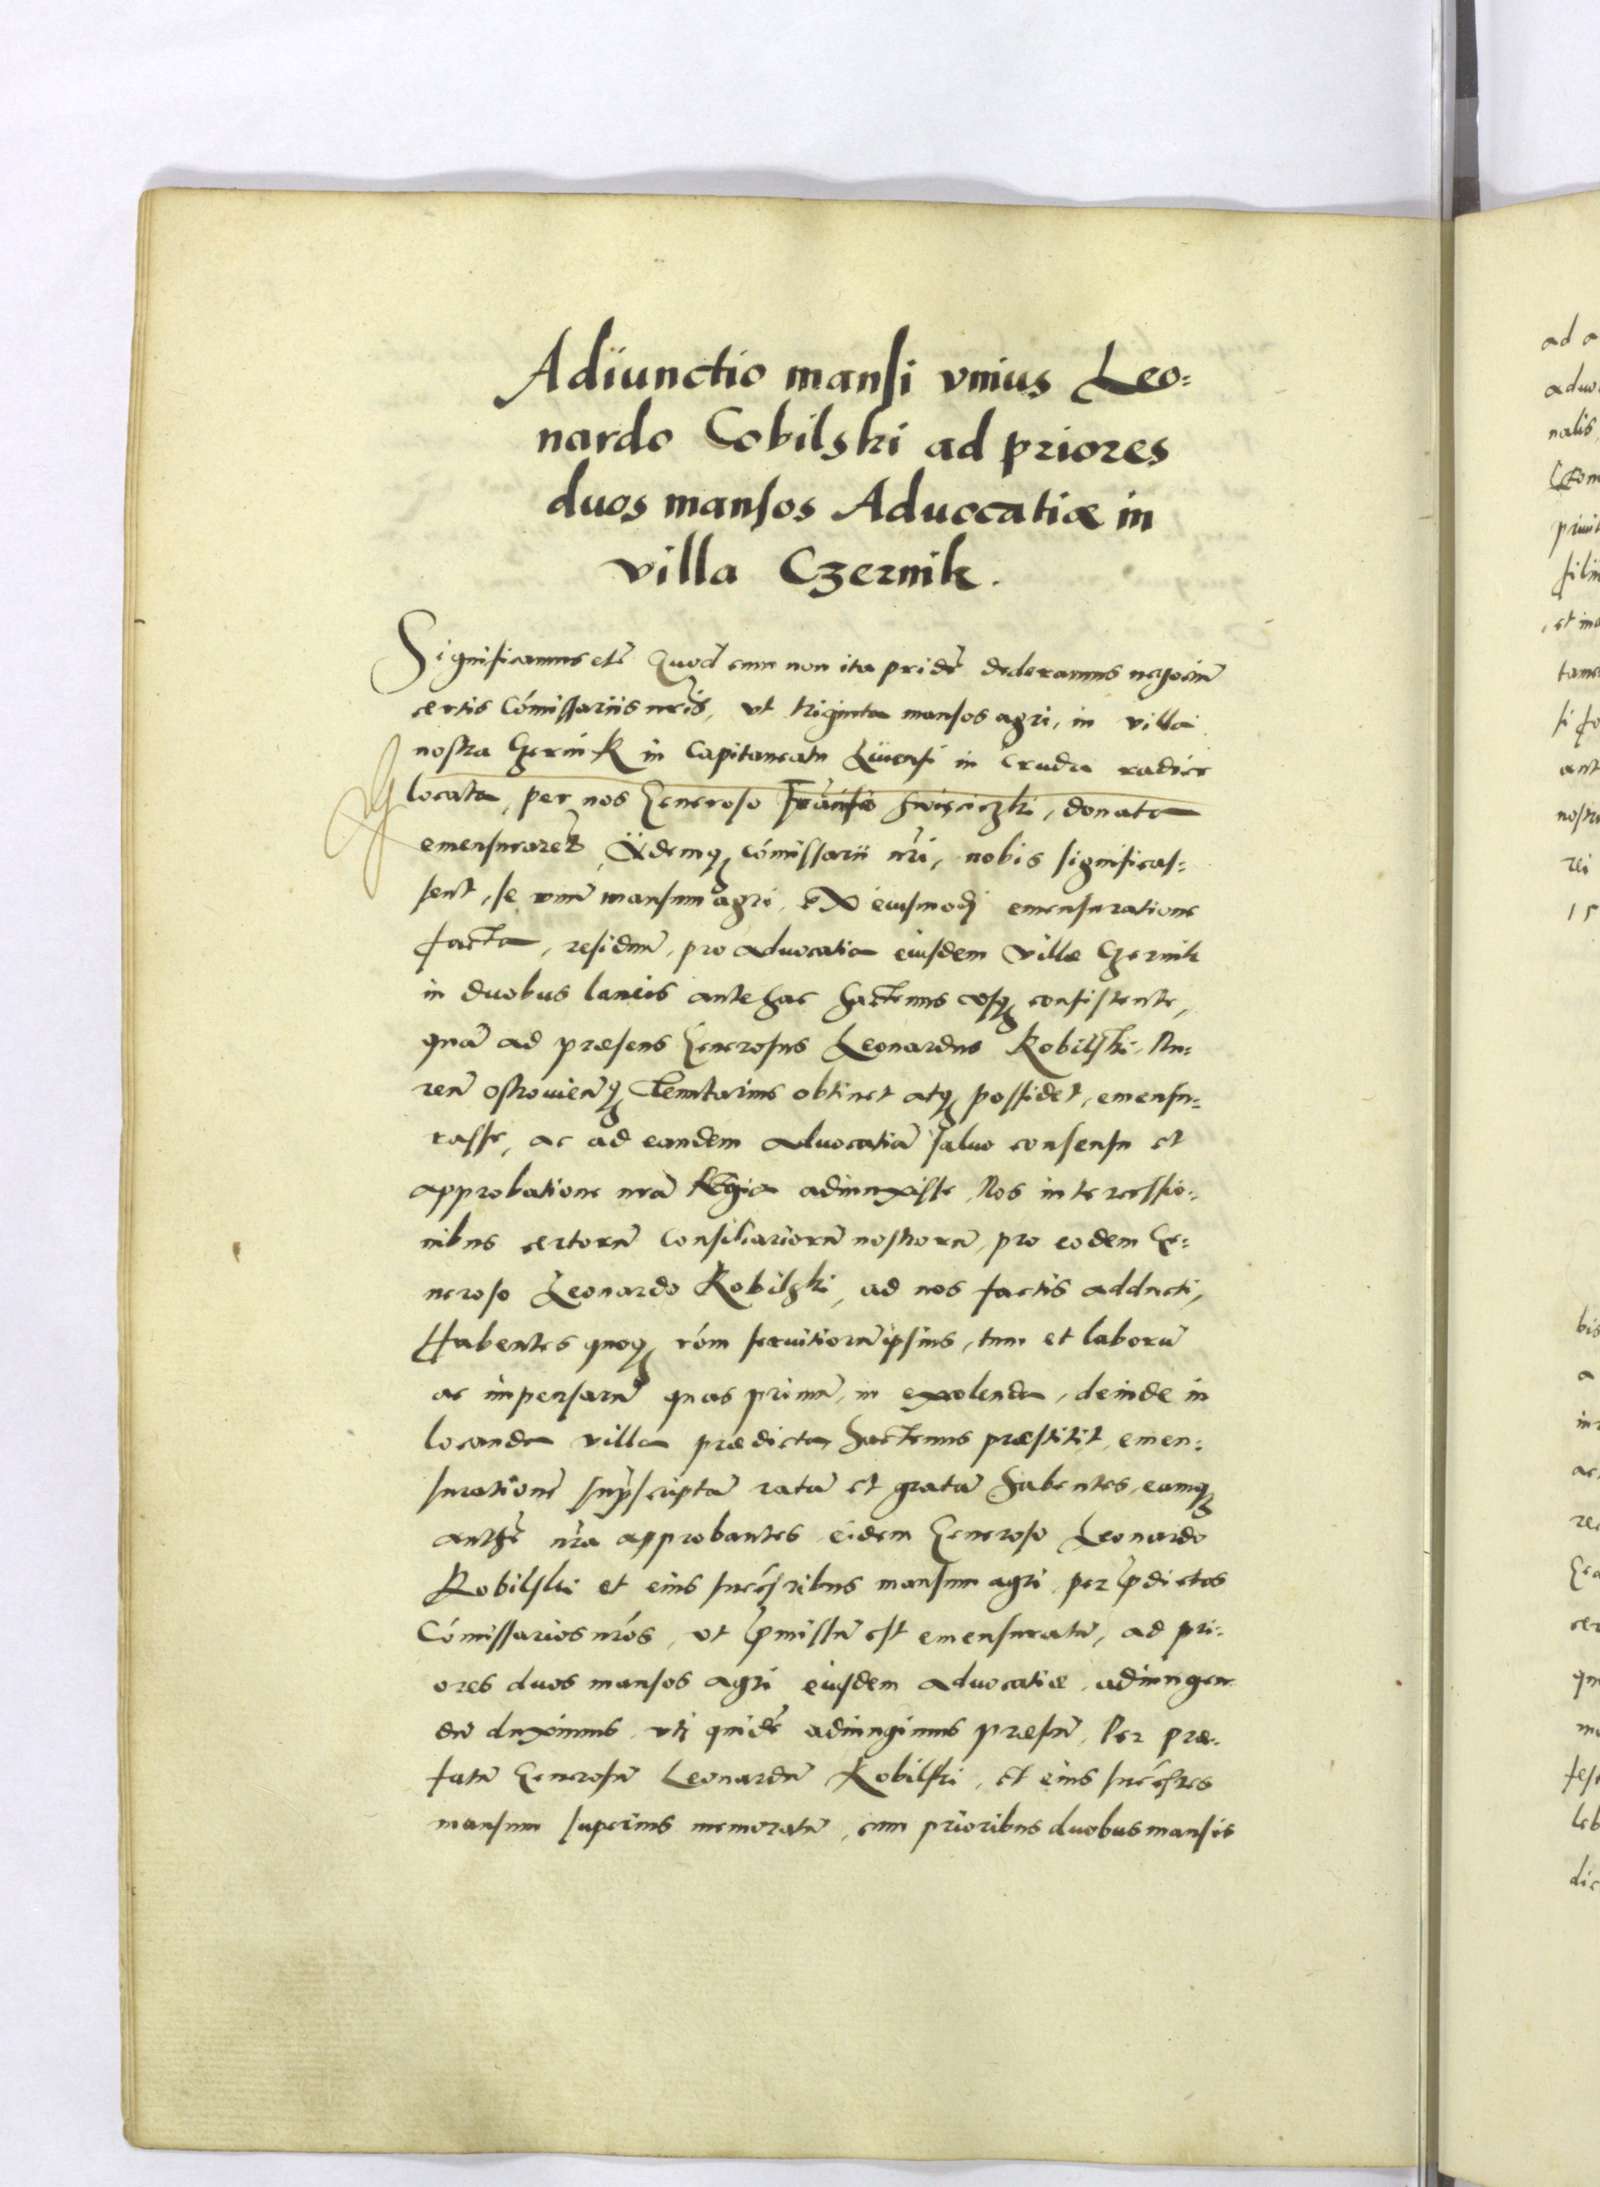 Adiunctio mansi vnius Leo:
nardo Cobilski ad priores
duos mansos Aduocatiæ in
villa Czernik.
Significamus etc̃ Quod cum non ita pridẽ dederamus negociũ
certis Cõmissariis nr̃is, vt triginta mansos agri, in villa
nostra Czernik in Capitaneatu Liuensi in cruda radice
locata, per nos Generoso Swięciczki, donata
emensurarẽt, Iidemq₃ cõmissarii nr̃i, nobis significas:
sent, se vnũ mansum agri, ex eiusmodi emensuratione
facta, residuũ, pro aduocatia eiusdem villæ Czernik
in duobus laneis antehac hactenus vsq₃ consistente,
quã ad præsens Generosus Leonardus Kobilski, Nu:
reñ ostrouieñq₃ Tenutarius obtinet atq₃ possidet, emensu:
rasse, ac ad eandem aduocatiã saluo consensu et
approbatione nr̃a Regia adiunxisse, Nos intercessio:
nibus certorũ Consiliariorũ nostrorũ, pro eodem Ge:
neroso Leonardo Kobilski, ad nos factis adducti,
Habentes quoq₃ rõm seruitiorũ ipsius, tum et laborũ
ac impensarũ quas primũ, in exolenda, deinde in
locanda villa prædicta hactenus præstitit, emen:
surationẽ supr̃scriptã ratã et gratã habentes, eamq₃
authẽ nr̃a approbantes eidem Generoso Leonardo
Kobilski et eius succẽsribus mansum agri per p̃dictos
Cõmissarios nr̃os, vt p̃missũ est emensuratũ, ad pri:
ores duos mansos agri eiusdem aduocatiæ adiungen
dũ duximus, vti quidẽ adiungimus præsñ, Per præ:
fatũ Generosũ Leonardũ Kobilski, et eius succẽsres
mansum superius memoratũ, cum prioribus duobus mansis